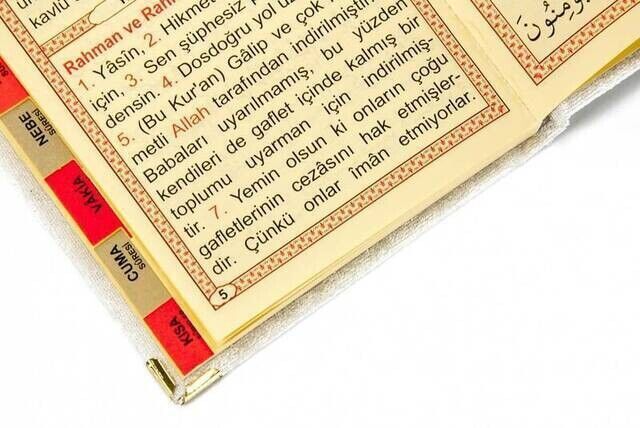 kavlü
Rahman ve Rah
1. Yâsîn, 2. Hikme
için, 3. Sen şüphesiz p
densin. 4. Dosdoğru yol üz
5. (Bu Kur'an) Gâlip ve çok
metli Allah tarafından indirilmiştir.
Babaları uyarılmamış, bu yüzden
kendileri de gaflet içinde kalmış bir
toplumu uyarman için indirilmiş-
tir. 7. Yemin olsun ki onların çoğu
gafletlerinin cezâsını hak etmişler-
dir. Çünkü onlar îmân etmiyorlar.
5
NEBE
SÛRESİ
VÂKIA
CUMA
SÛRESİ
KISA